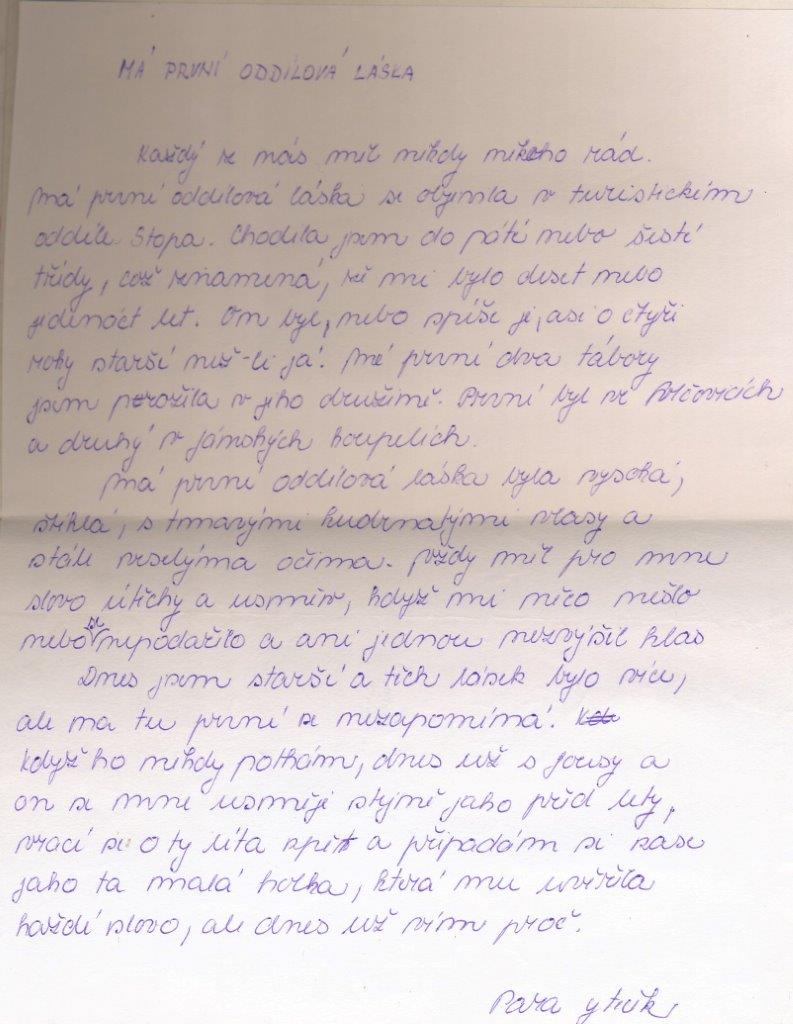 MÁ PRVNÍ ODDÍLOVÁ LÁSKA
Každý z nás měl někdy někoho rád.
Má první oddílová láska se objevila v turistickém
oddíle Stopa. Chodila jsem do páté nebo šesté
třídy, což znamená, že mi bylo deset nebo
jedenáct let. On byl, nebo spíše je, asi o čtyři
roky starší než-li já. Mé první dva tábory
jsem prožila v jeho družině. První byl ve
a druhý v Jánských koupelích.
Má první oddílová láska byla vysoká,
štíhlá, s tmavými kudrnatými vlasy a
stále veselýma očima. Vždy měl pro mne
slovo útěchy a úsměv, když mi něco nešlo
nebo se nepodařilo a ani jednou nezvýšil hlas
Dnes jsem starší a těch lásek bylo více,
ale na tu první se nezapomíná.
Když ho někdy potkám, dnes už s fousy a
on se mne usměje stejně jako před lety,
vrací se o ty léta zpět a připadám si zase
jako ta malá holka, která mu uvěřila
každé slovo, ale dnes už vím proč.